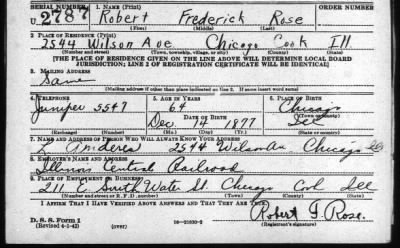 SERIAL NUMBER 1. NAME (Print) ORDER NUMBER
U 2787 Robert Frederick Rose
(First) (Middle) (Last)
2. PLACE OF RESIDENCE (Print)
2544 Wilson Ave Chicago Cook Ill
(Number and street) (Town, township, village, or city) (County) (State)
[THE PLACE OF RESIDENCE GIVEN ON THE LINE ABOVE WILL DETERMINE LOCAL BOARD
JURISDICTION; LINE 2 OF REGISTRATION CERTIFICATE WILL BE IDENTICAL]
3. MAILING ADDRESS
Same
[Mailing address if other than place indicated on line 2. If same insert word same]
4. TELEPHONE 5. AGE IN YEARS 6. PLACE OF BIRTH
Juniper 5547 64 Chicago
DATE OF BIRTH (Town or county)
Dec 14 1877 Ill
(Exchange) (Number) (Mo.) (Day) (Yr.) (State or country)
7. NAME AND ADDRESS OF PERSON WHO WILL ALWAYS KNOW YOUR ADDRESS
2544 Wilson Av Chicago Ill
8. EMPLOYER'S NAME AND ADDRESS
Illinois Central Railroad
9. PLACE OF EMPLOYMENT OR BUSINESS
211 E South Water St. Chicago Cook Ill
(Number and street or R. F. D. number) (Town) (County) (State)
I AFFIRM THAT I HAVE VERIFIED ABOVE ANSWERS AND THAT THEY ARE TRUE.
D. S. S. Form 1 Robert F. Rose.
(Revised 4-1-42) (over) (Registrant's signature)